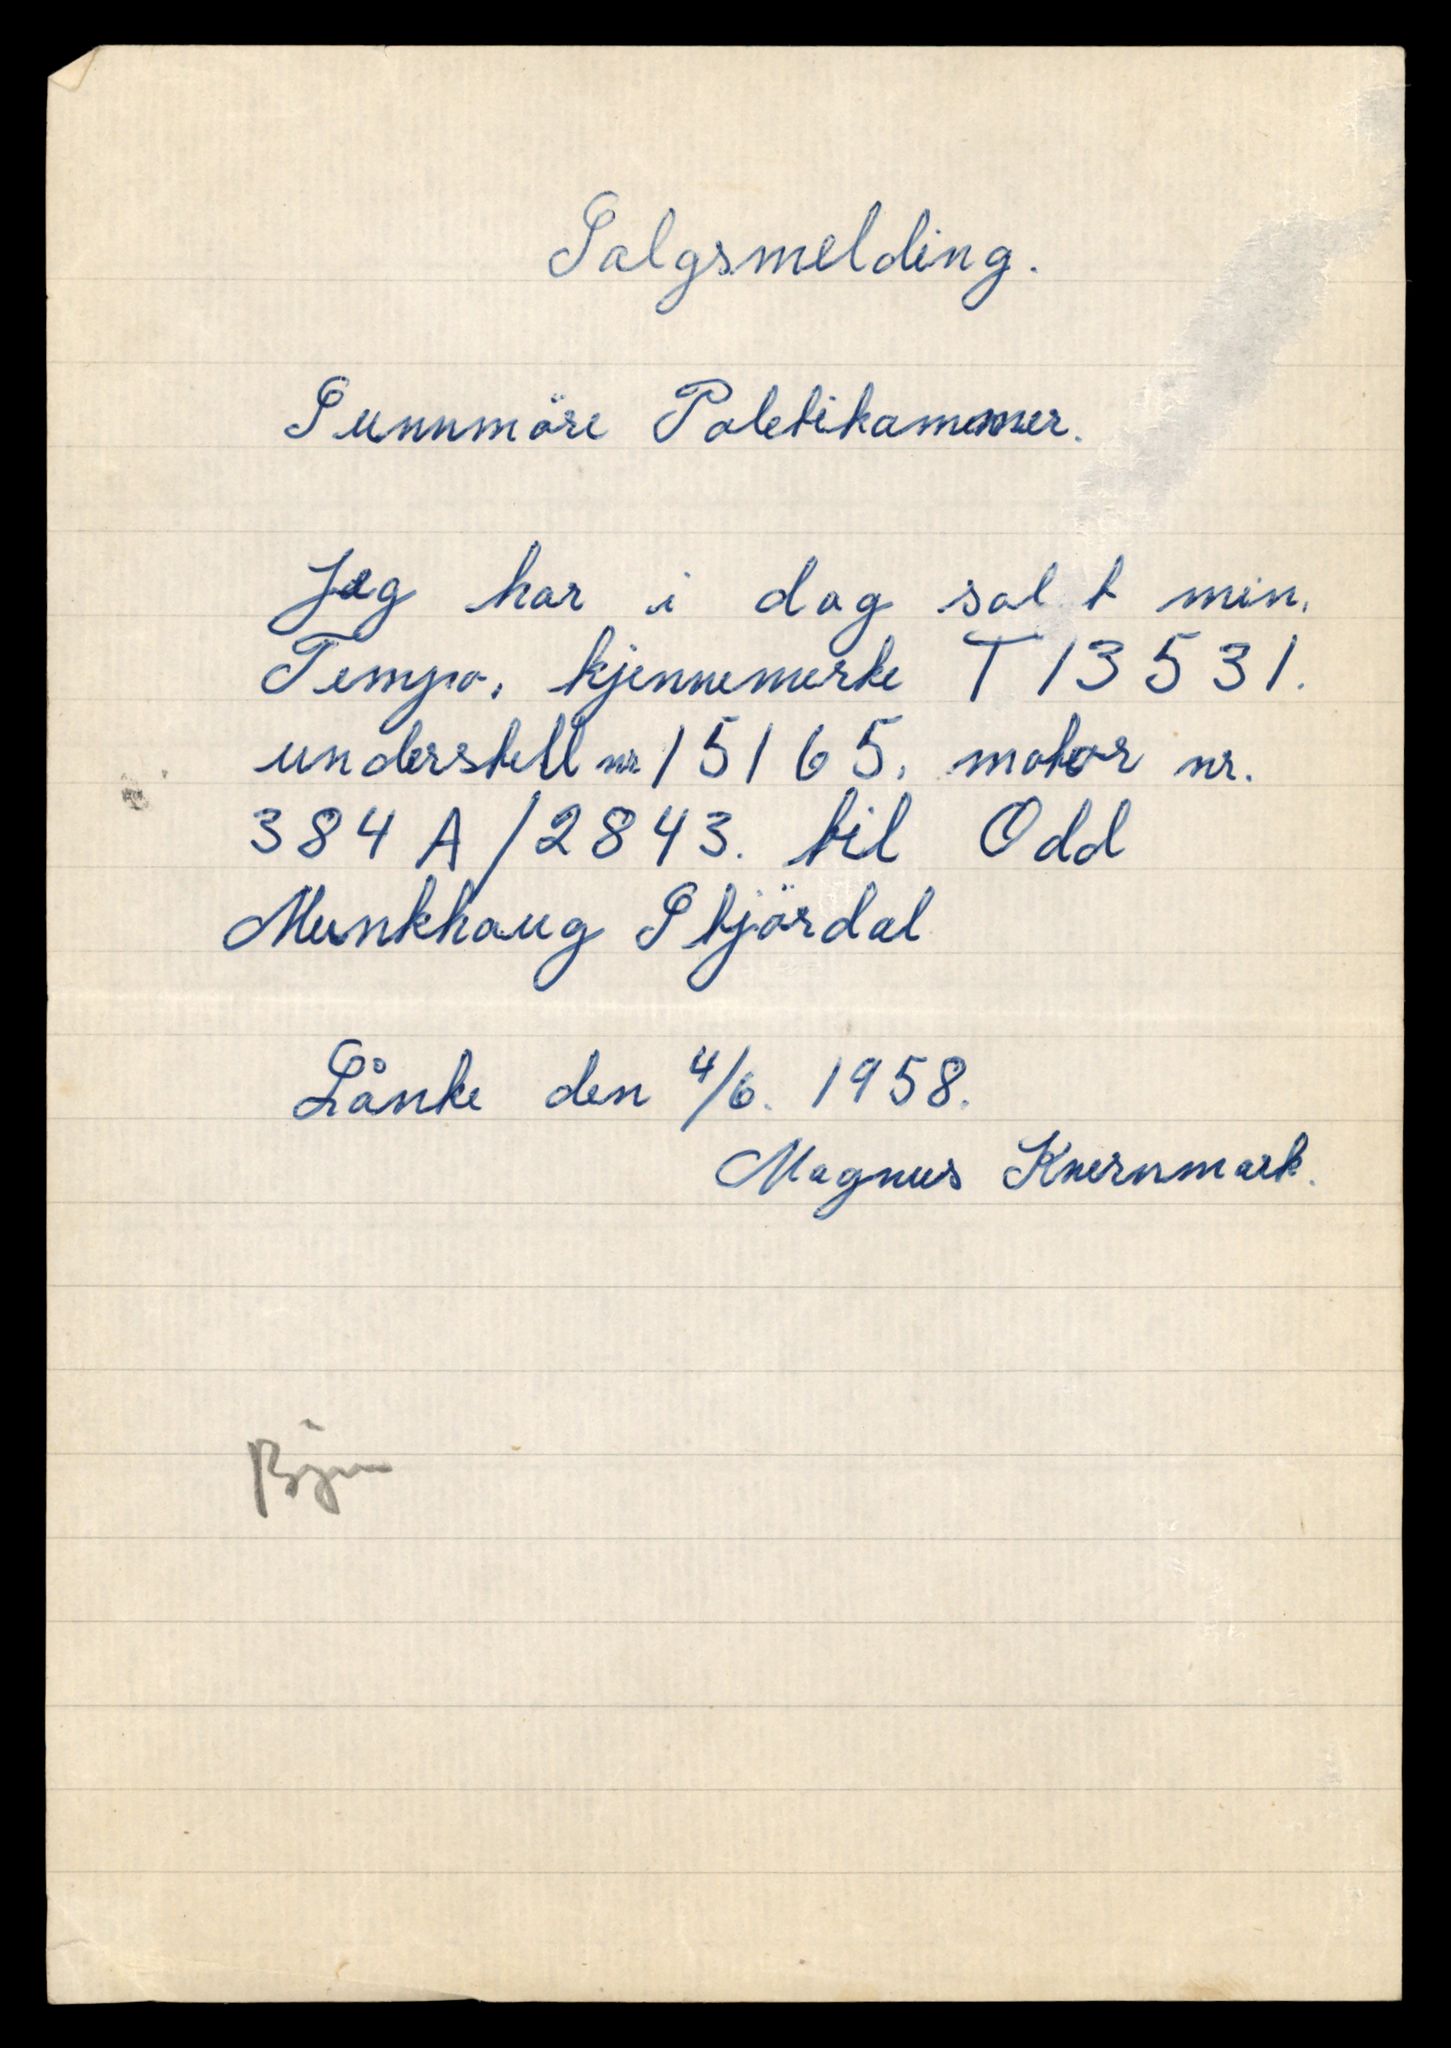 Salgsmelding.
Sunnmöre Poletikammer.
Jeg har i dag sal t min.
Tempo. kjennemerke T 13531.
understell nr 15165. motor nr.
384 A/2843. til Odd
Munkhaug Stjördal
Lånke den 4/6. 1958.
Magnus Kvernmark.